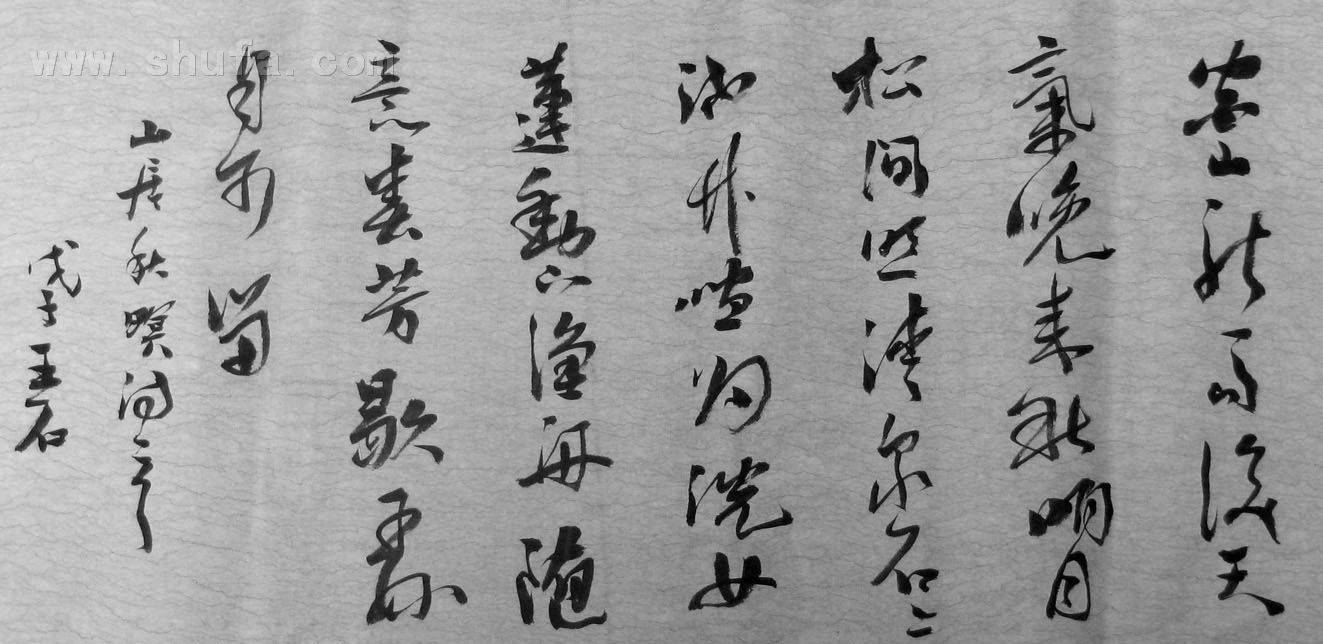 空山新雨後天
氣晚来秋明月
松間照清泉石上
流竹喧归浣女
蓮動下漁舟随
意春芳歇王孫
自可留
山居秋暝詩
戊子王石
www.shufa.com